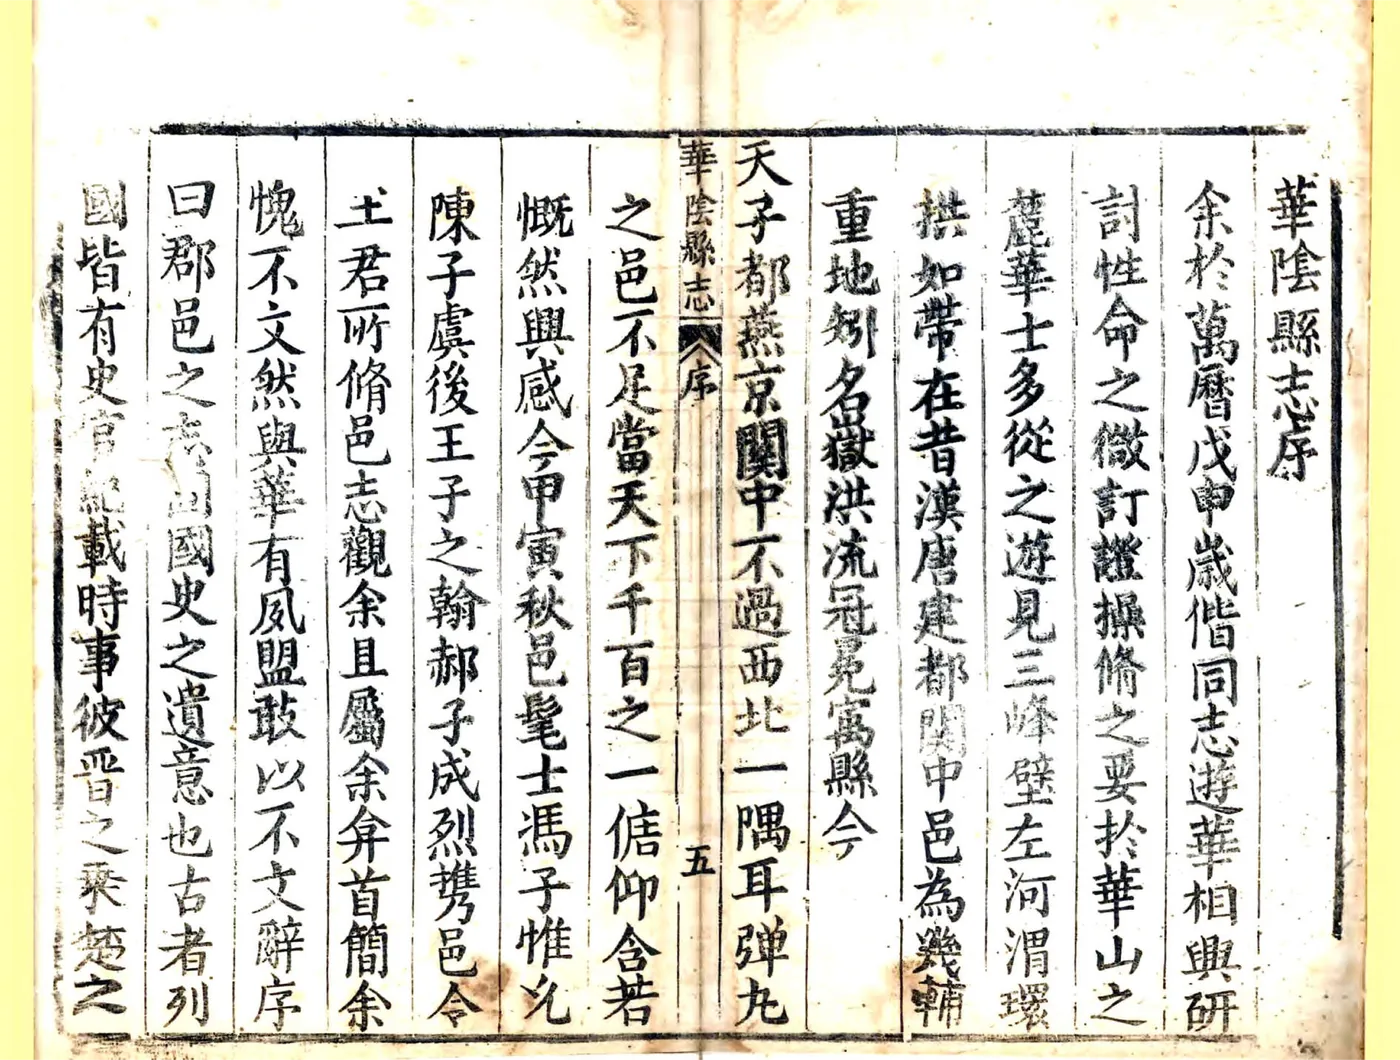 華陰縣志序
余於萬曆戊申歲偕同志遊華相與研
討性命之微訂證操脩之要於華山之
麓華士多從之遊見三峰壁左河渭環
拱如帶在昔漢唐建都関中邑為畿輔
重地矧名嶽洪流冠冕寓縣今
天子都燕京関中不過西北一隅耳弹丸
華陰縣志 序 五
之邑不足當天下千百之一偣仰含若
慨然興感今甲寅秋邑髦士馮子惟
陳子虞後王子之翰郝子成烈携邑令
王君所脩邑志觀余且屬余弁首簡余
愧不文然與華有夙盟敢以不文辭序
曰郡邑之志固國史之遺意也古者列
國皆有史官紀載時事彼晋之乗楚之